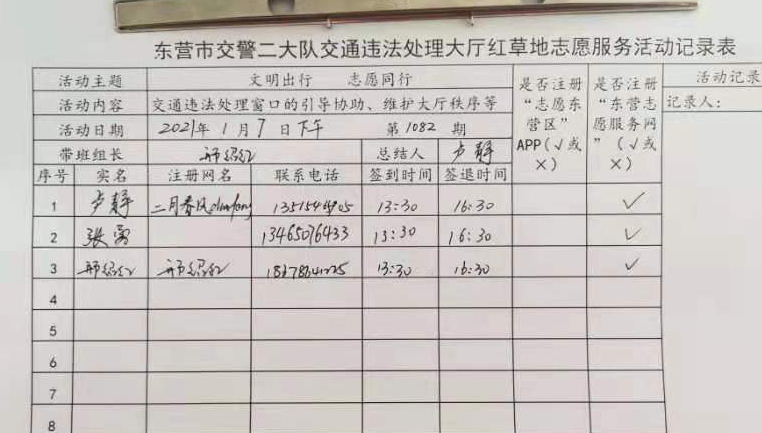 东营市交警二大队交通违法处理大厅红草地志愿服务活动记录表
活动主题 文明出行 志愿同行 是否注册“志愿东营区”APP(√或×) 是否注册“东营志愿服务网”(√或×) 活动记录
活动内容 交通违法处理窗口的引导协助、维护大厅秩序等 记录人:
活动日期 2021年1月7日下午 第1082期
带班组长 总结人 卢静
序号 实名 注册网名 联系电话 签到时间 签退时间
1 卢静 二月春风 13:30 16:30 √
2 张 13465076433 13:30 16:30 √
3 13:30 16:30 √
4
5
6
7
8